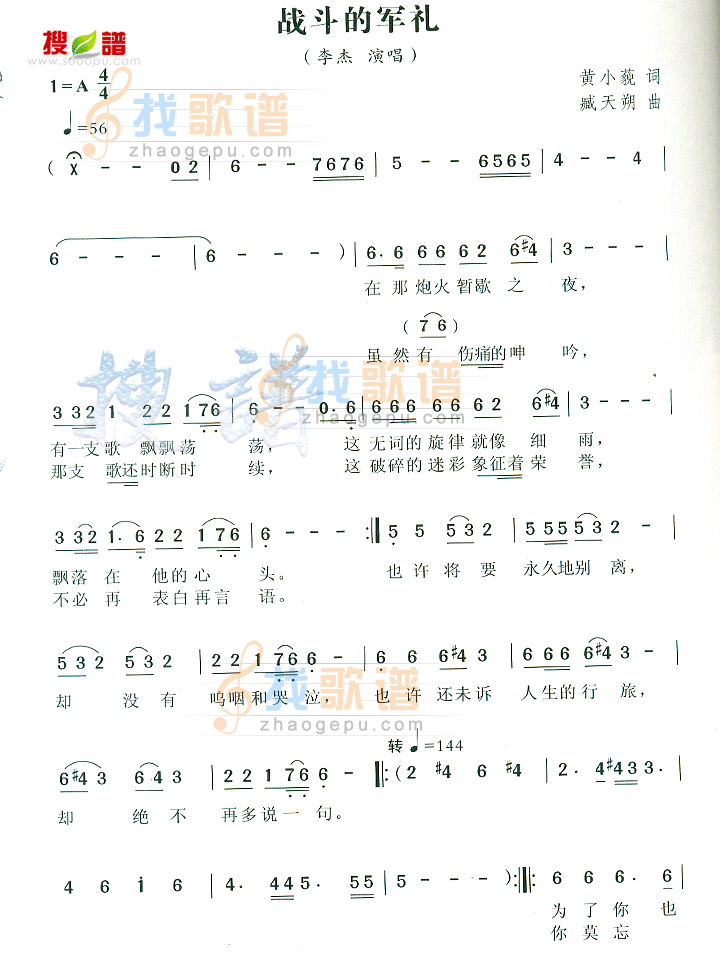 战斗的军礼
搜谱
www.sooopu.com
（李杰 演唱）
1=A 4/4
黄小藐 词
♩=56
臧天朔 曲
找歌谱
zhaogepu.com
( X - - 02 | 6 - - 7676 | 5 - - 6565 | 4 - - 4 |
6 - - - | 6 - - - ) | 6. 6 66 62 6#4 | 3 - - - |
在那炮火暂歇之夜，
( 76 )
虽然有伤痛的呻吟，
搜谱
找歌谱
zhaogepu.com
3 32 1 22 176 | 6 - - 0.6 | 666 66 62 6#4 | 3 - - - |
有一支歌飘飘荡荡， 这无词的旋律就像细雨，
那支歌还时断时续， 这破碎的迷彩象征着荣誉，
3 32 1.6 22 176 | 6 - - - :|| 5 5 532 | 555532 |
飘落在他的心头。 也许将要永久地别离，
不必再表白再言语。
532 532 | 22 1766 | 6 - 6 6 6#43 | 6 66 6#43 |
却没有呜咽和哭泣，也许还未诉人生的行旅，
找歌谱
zhaogepu.com
转♩=144
6#43 643 | 22 1766 | 6 - ||: ( 2 #4 6 #4 | 2. 4#433. |
却绝不再多说一句。
4 6 i 6 | 4. 445. 55 | 5 - - - ) :||: 6 6 6. 6 |
为了你也
你莫忘